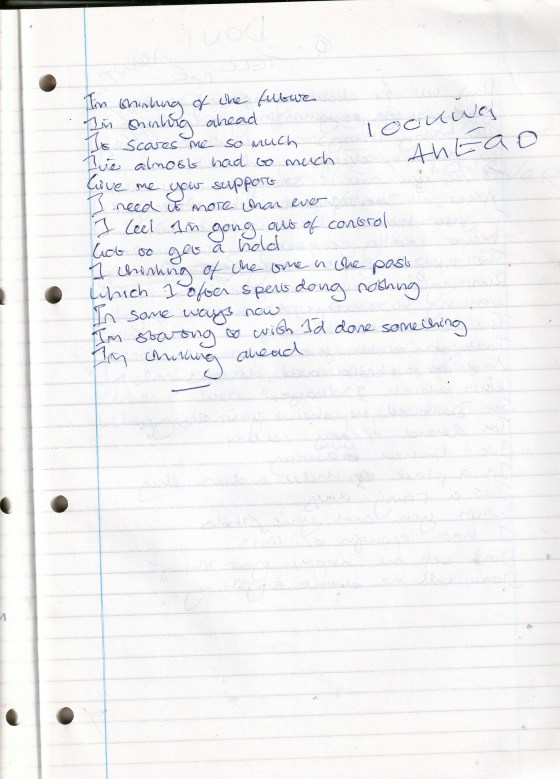 Im thinking of the future
Im thinking ahead
It scares me so much
I've almost had to much
Give me your support
I need it more than ever
I feel Im going out of control
Got to get a hold
I thinking of the time in the past
Which I often spent doing nothing
In some ways now
Im starting to wish I'd done something
Im thinking ahead
looking
AhEaD